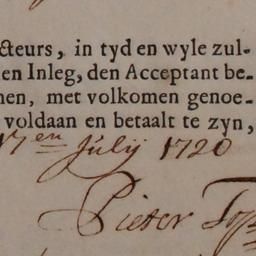 cteurs, in tyd en wyle zul-
en Inleg, den Acceptant be-
nen, met volkomen genoe-
voldaan en betaalt te zyn,
17en Julij 1720
Pieter